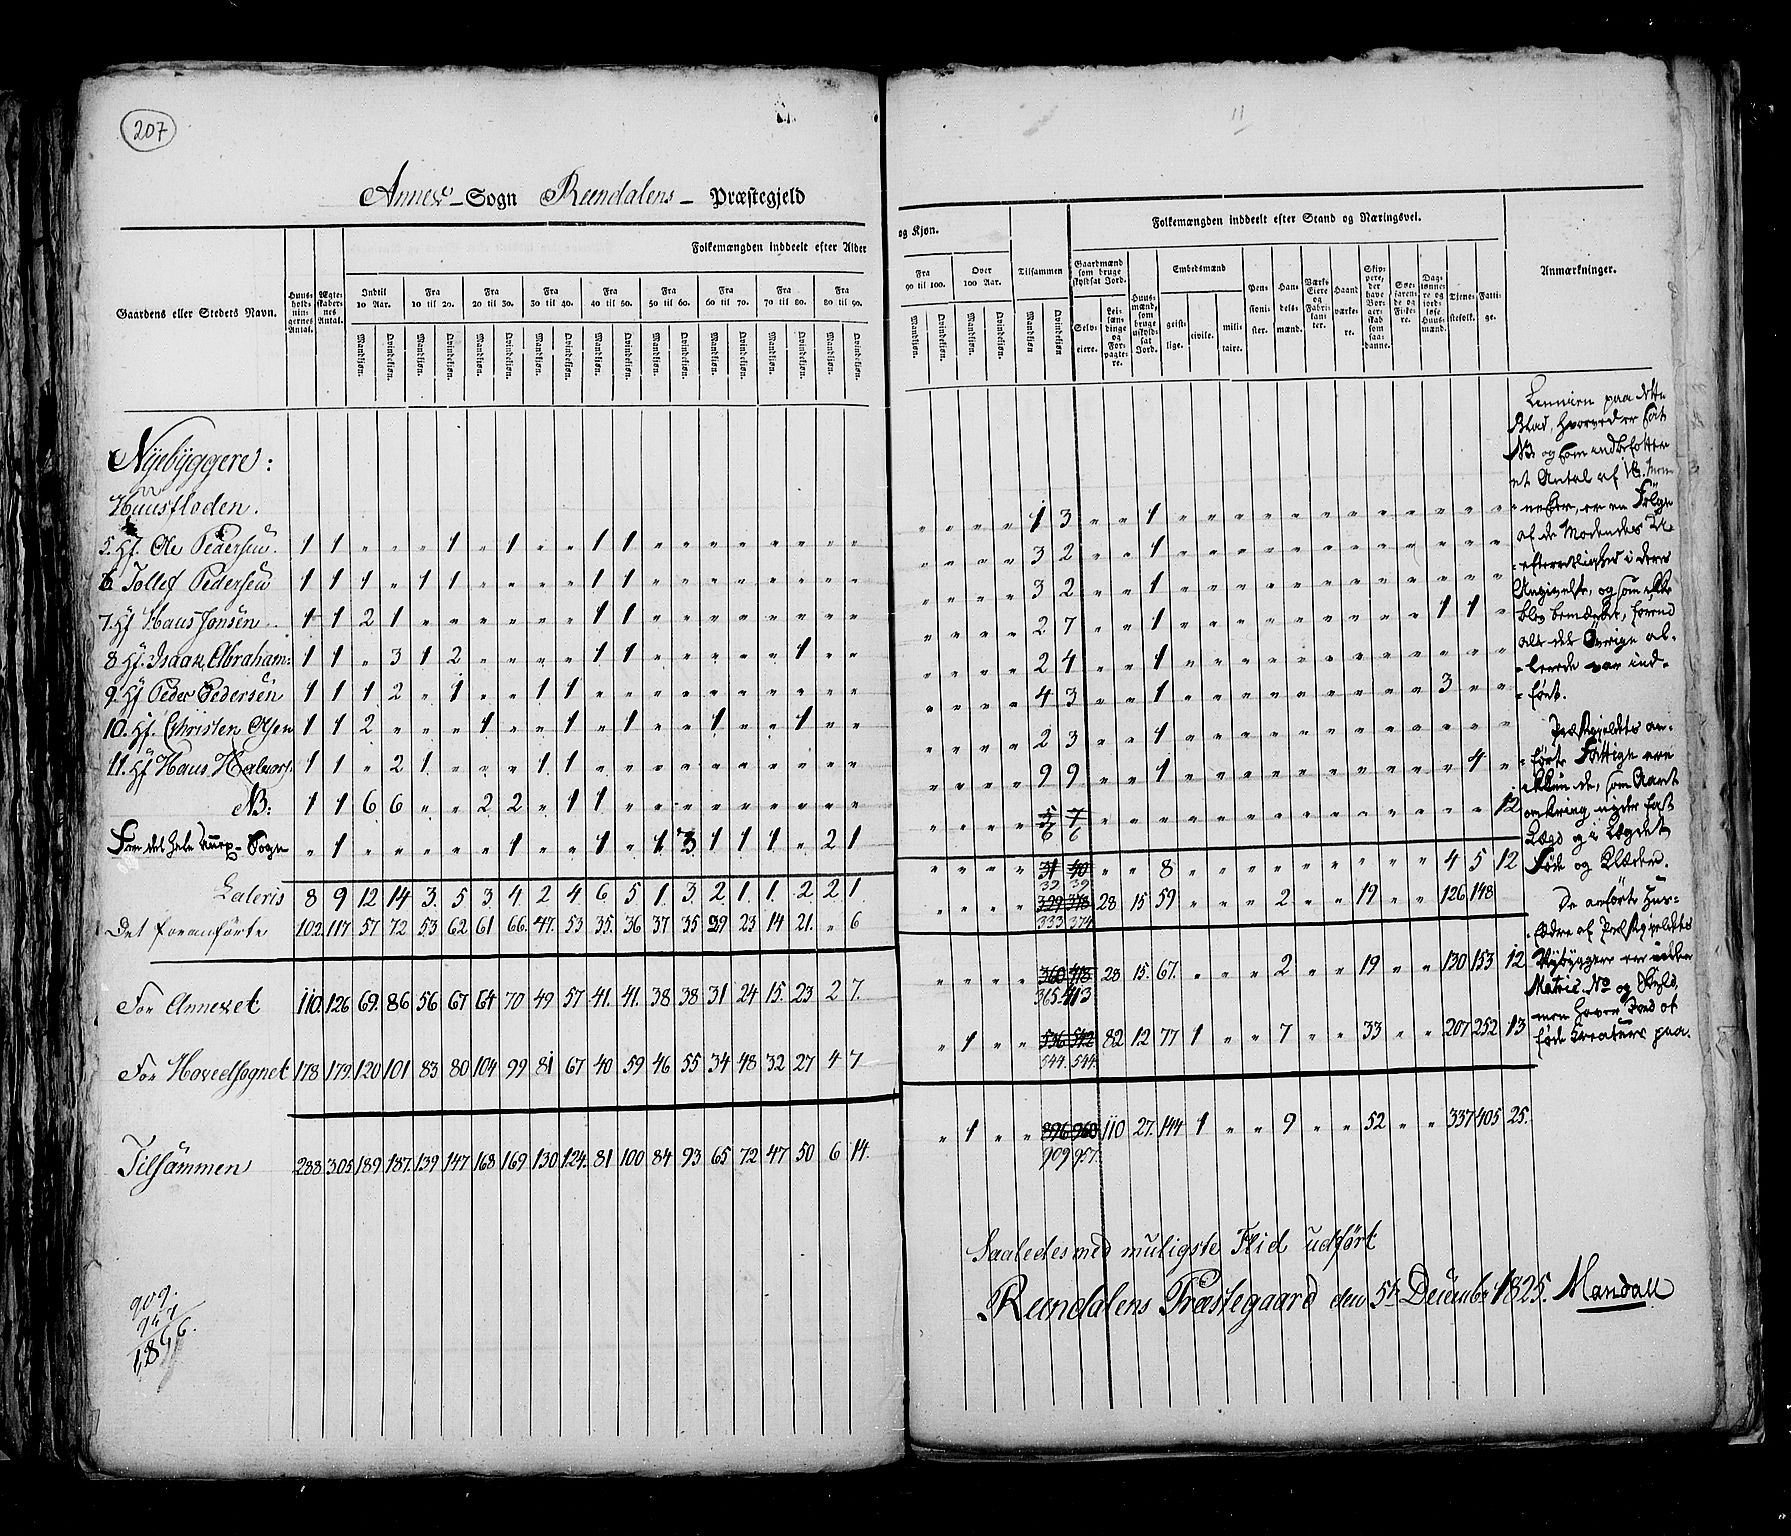 207
11
Annex-Sogn Randalens- Præstegjeld
Folkemængden inddeelt efter Alder
og Kjøn.
Folkemængden inddeelt efter Stand og Næringsvei.
Gaardens eller Stedets Navn.
Huusholdningernes Antal.
Ægteskabernes Antal.
Indtil 10 Aar.
Fra 10 til 20.
Fra 20 til 30.
Fra 30 til 40.
Fra 40 til 50.
Fra 50 til 60.
Fra 60 til 70.
Fra 70 til 80.
Fra 80 til 90.
Fra 90 til 100.
Over 100 Aar.
Tilsammen
Mandkjøn. Qvindekjøn.
Gaardmænd som bruge skyldsat Jord.
Selveiere.
Leilændinge og Forpagtere.
Huusmænd, som bruge uskyldsat Jord.
Embedsmænd
geistlige. civile. militaire.
Pensionister.
Handelsmænd.
Værks Eiere og Fabrikanter.
Haandværkere.
Skippere, der have Borgerskab som saadanne.
Søefarende og Fiskere.
Dagslønnere og jordløse Huusmænd.
Tjenestefolk.
Fattige.
Anmærkninger.
Nyebyggere:
5. Hf. Ole Pedersen. 1 1 " " " 1 " 1 " " 1 1 " " " " " " " " " " " " 1 3 " " 1 " " " " " " " " " " " "
6 Tollef Pedersen 1 1 1 " 1 1 " " " " 1 1 " " " " " " " " " " " " 3 2 " " 1 " " " " " " " " " " " "
7. Hf Hans Jonsen 1 1 2 1 " " " " " " 1 1 " " " " " " " " " " " " 3 2 " " 1 " " " " " " " " " " " "
8 Hf. Isaak Abraham: 1 1 " 3 1 2 " " " " 1 1 " " " " " 1 " " " " " " 2 7 " " 1 " " " " " " " " " 1 1 "
9. Hf Peder Pedersen 1 1 1 2 " 1 " " 1 1 " " " " " " " " " " " " " " 2 4 " " 1 " " " " " " " " " " " "
10. Hf. Christen Olsen 1 1 2 " " " 1 " " 1 " 1 " " 1 " " 1 " " " " " " 4 3 " " 1 " " " " " " " " " 3 " "
11. Hf Hans Halvors. 1 1 " 2 1 " " " 1 1 " " " " " " " " " " " " " " 2 3 " " 1 " " " " " " " " " " " "
NB: 1 1 6 6 " " 2 2 " 1 1 " " " " " " " " " " " " " 9 9 " " 1 " " " " " " " " " " 4 "
For det hele Annex-Sogn " 1 " " " " " 1 " " 1 " 1 3 1 1 1 " 2 1 " " " " 5 7 " " " " " " " " " " " " " " 12
6 6
Lateris 8 9 12 14 3. 5 3 4. 2 4. 6 5 1. 3. 2 1. 1. 2 2 1. " " " " 31 40 " " 8 " " " " " " " " " 4 5 12
32 39
Det foranførte 102. 117 57 72 53 62 61 66. 47. 53 35. 36 37 35 29 23 14 21. " 6 " " " " 329 378 28 15 59 " " " " 2 " " 19 " " 126 148
333 374
For Annexet 110. 126 69. 86 56 67 64 70 49 57 41. 41. 38 38 31 24 15. 23 2 7. " " " " 360 418 28 15 67. " " " " 2 " " 19 " " 130 153 12
365. 413
For Hovedsognet 178 179. 120 101 83 80 104 99 81 67 40 59 46 55 34 48 32 27 4 7 " 1 " " 536 542 82 12 77 1 " " " 7 " " 33 " " 207 252 13
544. 544.
Tilsammen 288 305 189. 187. 139 147 168 169 130 124. 81 100 84 93 65 72 47 50 6 14. " 1 " " 896 960 110 27. 144 1 " " " 9 " " 52 " " 337 405 25.
909 957.
Linnien paa dette
Blad, hvorved er sat
NB og som indbefatter
et Antal af 18. Men-
nesker, er en Følge
af de Modendes U-
efterretlighed i deres
Angivelse, og som ikke
blev bemærket, førend
alt det Øvrige al-
lerede var ind-
ført.
Præstegjeldets an-
førte Fattige ere
ikkun de, som Aaret
omkring nyde fast
Lægd og i Lægdet
Føde og Klæder.
De anførte Huus-
fædre af Præstegjeldets
Nybyggere ere uden
Matric. No og Skyld,
men have Jord at
føde Kreature paa.
Saaledes med muligste Flid udført
Randalens Præstegaard den 5te December 1825. Mandall
909.
957
1,866.